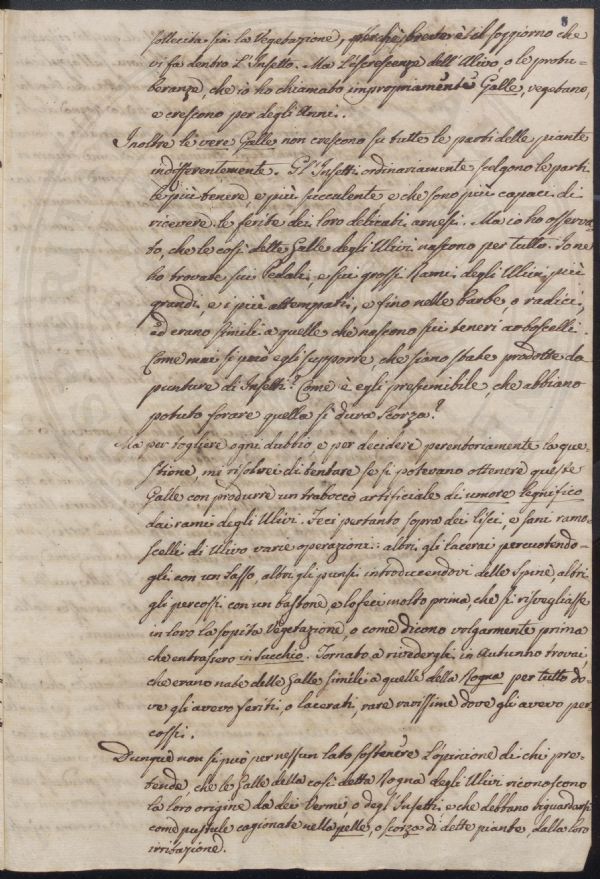 8
sollecita sia la Vegetazione, perchè breve è il soggiorno che
vi fà dentro l'Insetto. Ma l'escrescenze dell'Ulivo, o le protu-
beranze, che io ho chiamato impropriamente Galle, vegetano,
e crescono per degli Anni.
Inoltre le vere Galle non crescono su tutte le parti delle piante
indifferentemente. Gl'Insetti ordinariamente scelgono le parti
le più tenere, e più succulente, e che sono più capaci di
ricevere le ferite dei loro delicati arnesi. Ma io ho osserva-
to, che le così dette Galle degli Ulivi nascono per tutto. Io ne
ho trovate sui Pedali, e sui grossi Rami degli Ulivi più
grandi, e i più attempati, e fino nelle barbe, o radici,
ed erano simili a quelle che nascono sui teneri arboscelli.
Come mai si può egli supporre, che siano state prodotte da
punture di Insetti? Come è egli presumibile, che abbiano
potuto forare quella sì dura Scorza?
Ma per togliere ogni dubbio, e per decidere perentoriamente la que-
stione, mi risolvei di tentare se si potevano ottenere queste
Galle con produrre un trabocco artificiale di umore legnifico
dai rami degli Ulivi. Feci pertanto sopra dei lisci, e sani ramo-
scelli di Ulivo varie operazioni: altri gli lacerai percuotendo-
gli con un Sasso, altri gli punsi introducendovi delle Spine, altri
gli percossi con un bastone, e lo feci molto prima, che si risvegliasse
in loro la sopita Vegetazione, o come dicono volgarmente prima
che entrassero in succhio. Tornato a rivedergli in Autunno trovai,
che erano nate delle Galle simili a quelle della Rogna per tutto do-
ve gli avevo feriti, o lacerati, rare rarissime dove gli avevo per-
cossi.
Dunque non si può per nessun lato sostenere l'opinione di chi pre-
tende, che le Galle della così detta Rogna degli Ulivi riconoscono
la loro origine da dei Vermi, o degl'Insetti, e che debbano riguardarsi
come pustule cagionate nella pelle, o scorza di dette piante, dalla loro
irritazione.